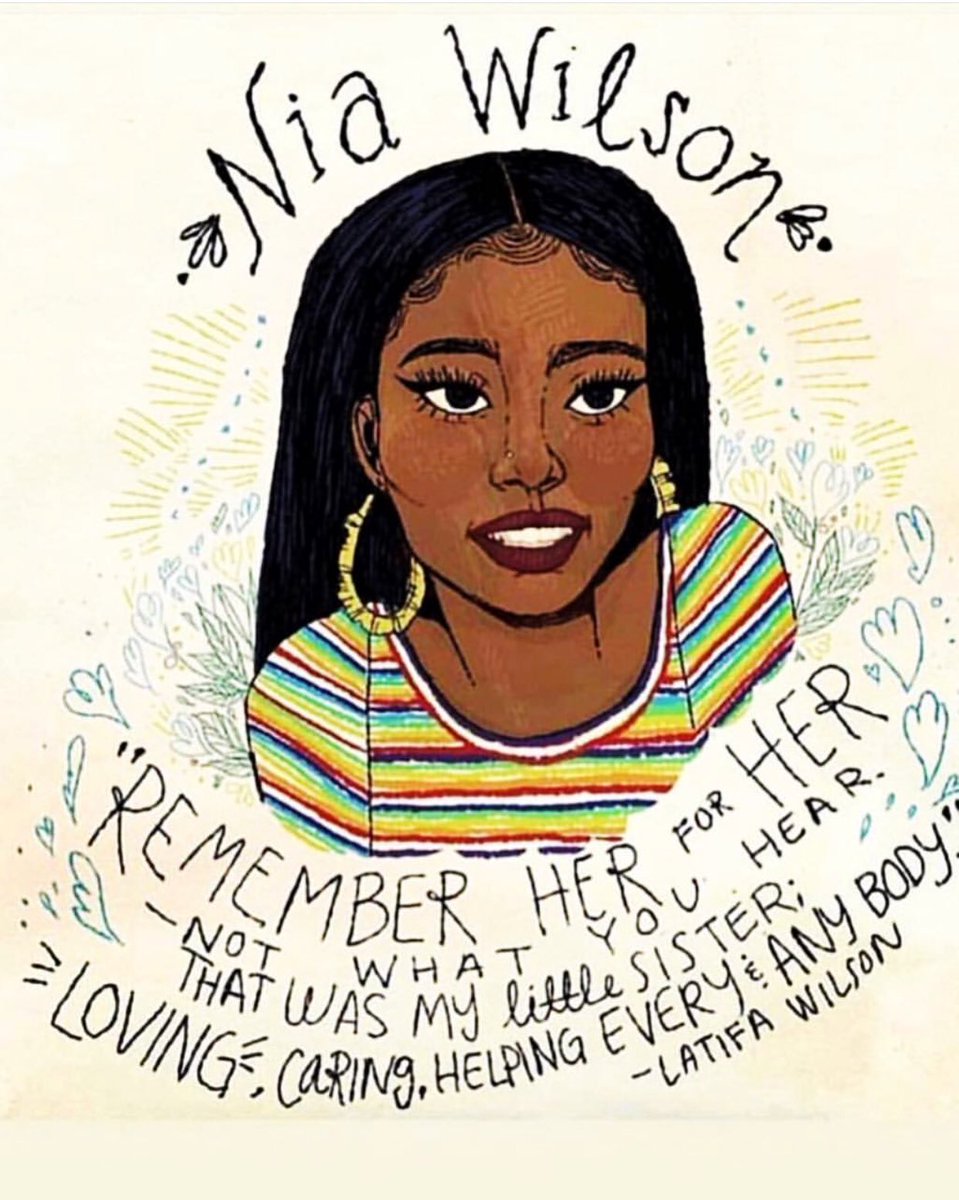 Nia Wilson
"REMEMBER HER FOR HER
- NOT WHAT YOU HEAR.
THAT WAS MY little SISTER;
"LOVING", CARING, HELPING EVERY & ANY BODY".
- LATIFA WILSON